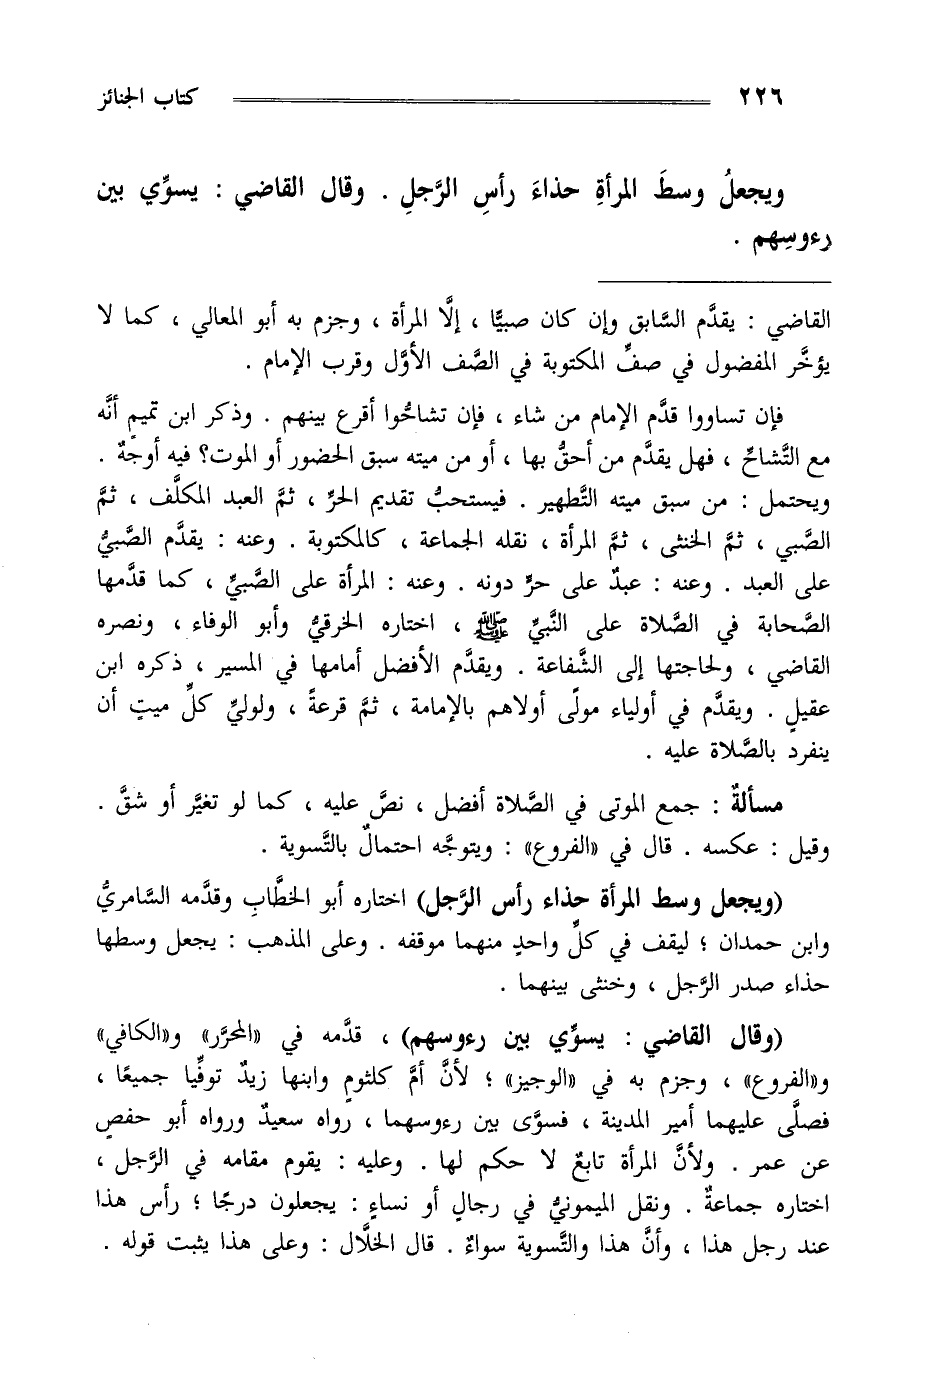 ٢٢٦ كتاب الجنائز
ويجعلُ وسطَ المرأةِ حذاءَ رأسِ الرَّجلِ . وقال القاضي : يسوِّي بين
رءوسِهم .
القاضي : يقدَّم السَّابق وإن كان صبيًّا ، إلَّا المرأة ، وجزم به أبو المعالي ، كما لا
يؤخَّر المفضول في صفِّ المكتوبة في الصَّف الأوَّل وقرب الإمام .
فإن تساووا قدَّم الإمام من شاء ، فإن تشاحُّوا أقرع بينهم . وذكر ابن تميمٍ أنَّه
مع التَّشاحِّ ، فهل يقدَّم من أحقُّ بها ، أو من ميته سبق الحضور أو الموت؟ فيه أوجهٌ .
ويحتمل : من سبق ميته التَّطهير . فيستحبُّ تقديم الحرِّ ، ثمَّ العبد المكلَّف ، ثمَّ
الصَّبي ، ثمَّ الخنثى ، ثمَّ المرأة ، نقله الجماعة ، كالمكتوبة . وعنه : يقدَّم الصَّبيُّ
على العبد . وعنه : عبدٌ على حرٍّ دونه . وعنه : المرأة على الصَّبيِّ ، كما قدَّمها
الصَّحابة في الصَّلاة على النَّبيِّ ﷺ ، اختاره الخرقيُّ وأبو الوفاء ، ونصره
القاضي ، ولحاجتها إلى الشَّفاعة . ويقدَّم الأفضل أمامها في المسير ، ذكره ابن
عقيلٍ . ويقدَّم في أولياء مولًى أولاهم بالإمامة ، ثمَّ قرعةً ، ولوليِّ كلِّ ميتٍ أن
ينفرد بالصَّلاة عليه .
مسألةٌ : جمع الموتى في الصَّلاة أفضل ، نصَّ عليه ، كما لو تغيَّر أو شقَّ .
وقيل : عكسه . قال في «الفروع» : ويتوجَّه احتمالٌ بالتَّسوية .
(ويجعل وسط المرأة حذاء رأس الرَّجل) اختاره أبو الخطَّابِ وقدَّمه السَّامريُّ
وابن حمدان ؛ ليقف في كلِّ واحدٍ منهما موقفه . وعلى المذهب : يجعل وسطها
حذاء صدر الرَّجل ، وخنثى بينهما .
(وقال القاضي : يسوِّي بين رءوسهم) ، قدَّمه في «المحرَّر» و«الكافي»
و«الفروع» ، وجزم به في «الوجيز» ؛ لأنَّ أمَّ كلثومٍ وابنها زيدٌ توفِّيا جميعًا ،
فصلَّى عليهما أمير المدينة ، فسوَّى بين رءوسهما ، رواه سعيدٌ ورواه أبو حفصٍ
عن عمر . ولأنَّ المرأة تابعٌ لا حكم لها . وعليه : يقوم مقامه في الرَّجل ،
اختاره جماعةٌ . ونقل الميمونيُّ في رجالٍ أو نساءٍ : يجعلون درجًا ؛ رأس هذا
عند رجل هذا ، وأنَّ هذا والتَّسوية سواءٌ . قال الخلَّال : وعلى هذا يثبت قوله .